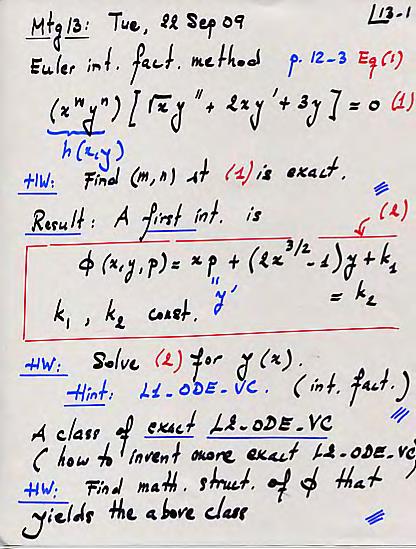 Mtg 13: Tue, 22 Sep 09 L13-1
Euler int. fact. method p. 12-3 Eq(1)
(x^m y^n) [√x y'' + 2x y' + 3y] = 0 (1)
h(x,y)
HW: Find (m,n) st (1) is exact.
Result: A first int. is (2)
φ(x,y,p) = x p + (2x^{3/2} - 1) y + k₁
"y' = k₂
k₁, k₂ const.
HW: Solve (2) for y(x).
Hint: L1-ODE-VC. (int. fact.)
A class of exact L2-ODE-VC
(how to invent more exact L2-ODE-VC)
HW: Find math. struct. of φ that
yields the above class